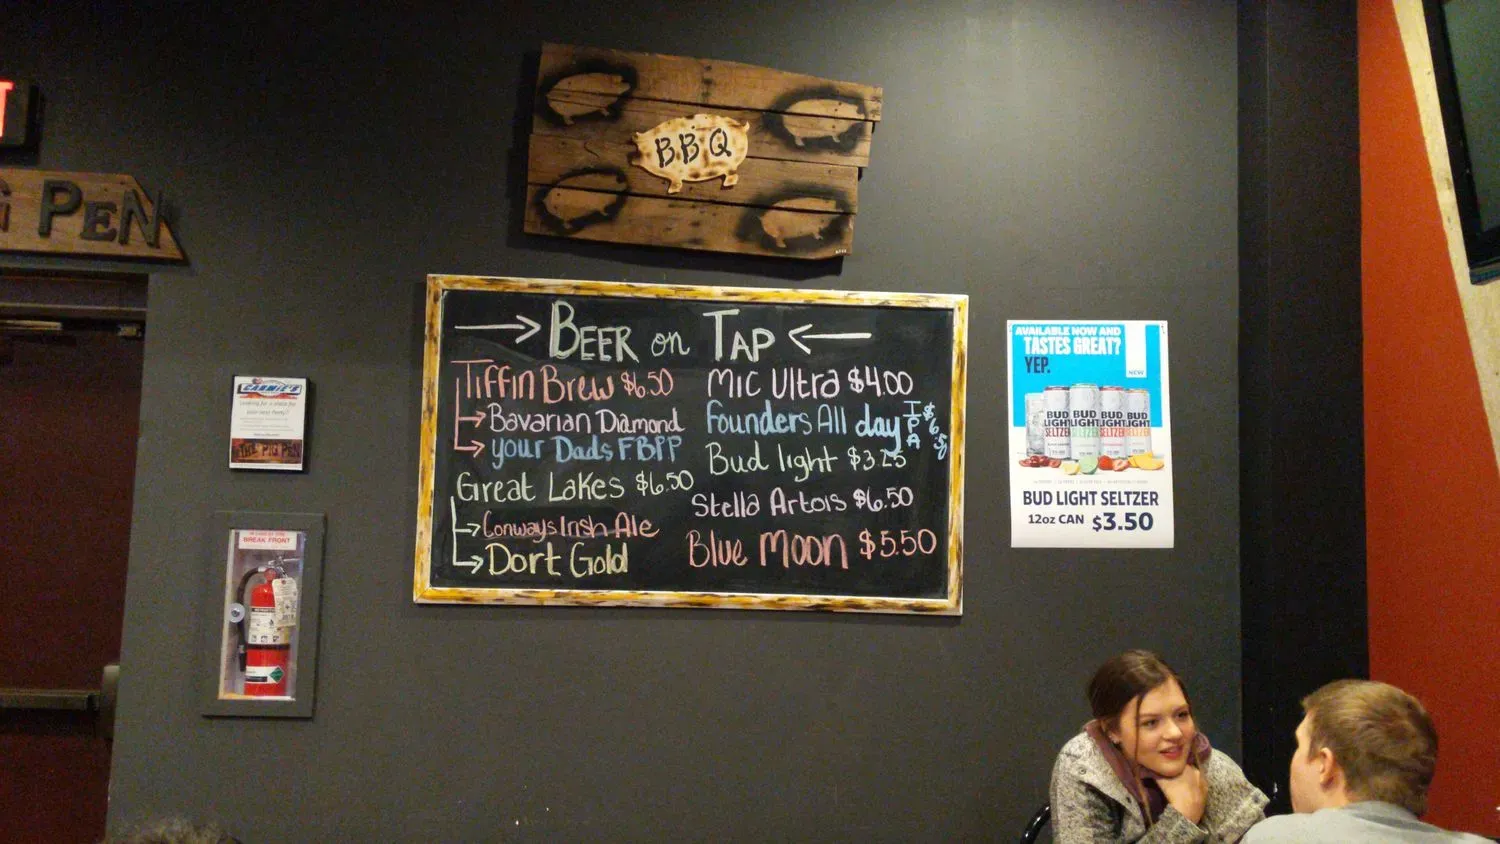 BBQ
G PEN
BEER on TAP
Tiffin Brew $6.50
Bavarian Diamond
your Dads FBPP
Great Lakes $6.50
Conways Irish Ale
Dort Gold
Mic Ultra $4.00
Founders All day IPA $6.50
Bud light $3.25
Stella Artois $6.50
Blue Moon $5.50
AVAILABLE NOW AND
TASTES GREAT?
YEP.
NEW
BUD LIGHT SELTZER
BUD LIGHT SELTZER
BUD LIGHT SELTZER
BUD LIGHT SELTZER
BUD LIGHT SELTZER
12oz CAN $3.50
Looking for a place for
your next Party?
THE PIG PEN
BREAK FRONT